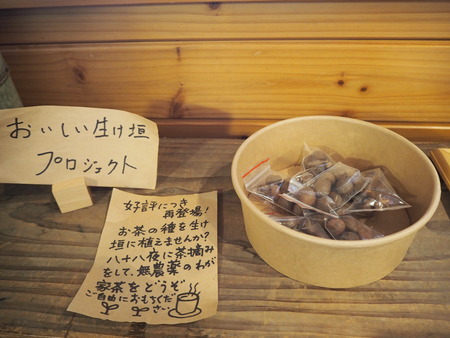 おいしい生け垣
プロジェクト
好評につき
再登場!
お茶の種を生け
垣に植えませんか?
八十八夜に茶摘み
をして、無農薬のわが
家茶をどうぞ
ご自由におもちくだ
さい